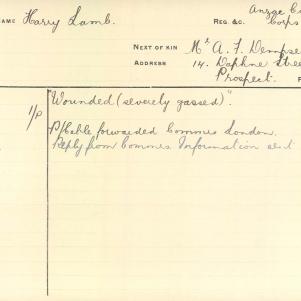 NAME Harry Lamb. REG. &C. Anzac C
Corps
NEXT OF KIN Mr A. F. Dempse
ADDRESS 14. Daphne Stree
Prospect.
"Wounded (severely gassed)".
1/p P/Cable forwarded Commrs London.
Reply from Commrs Information sent